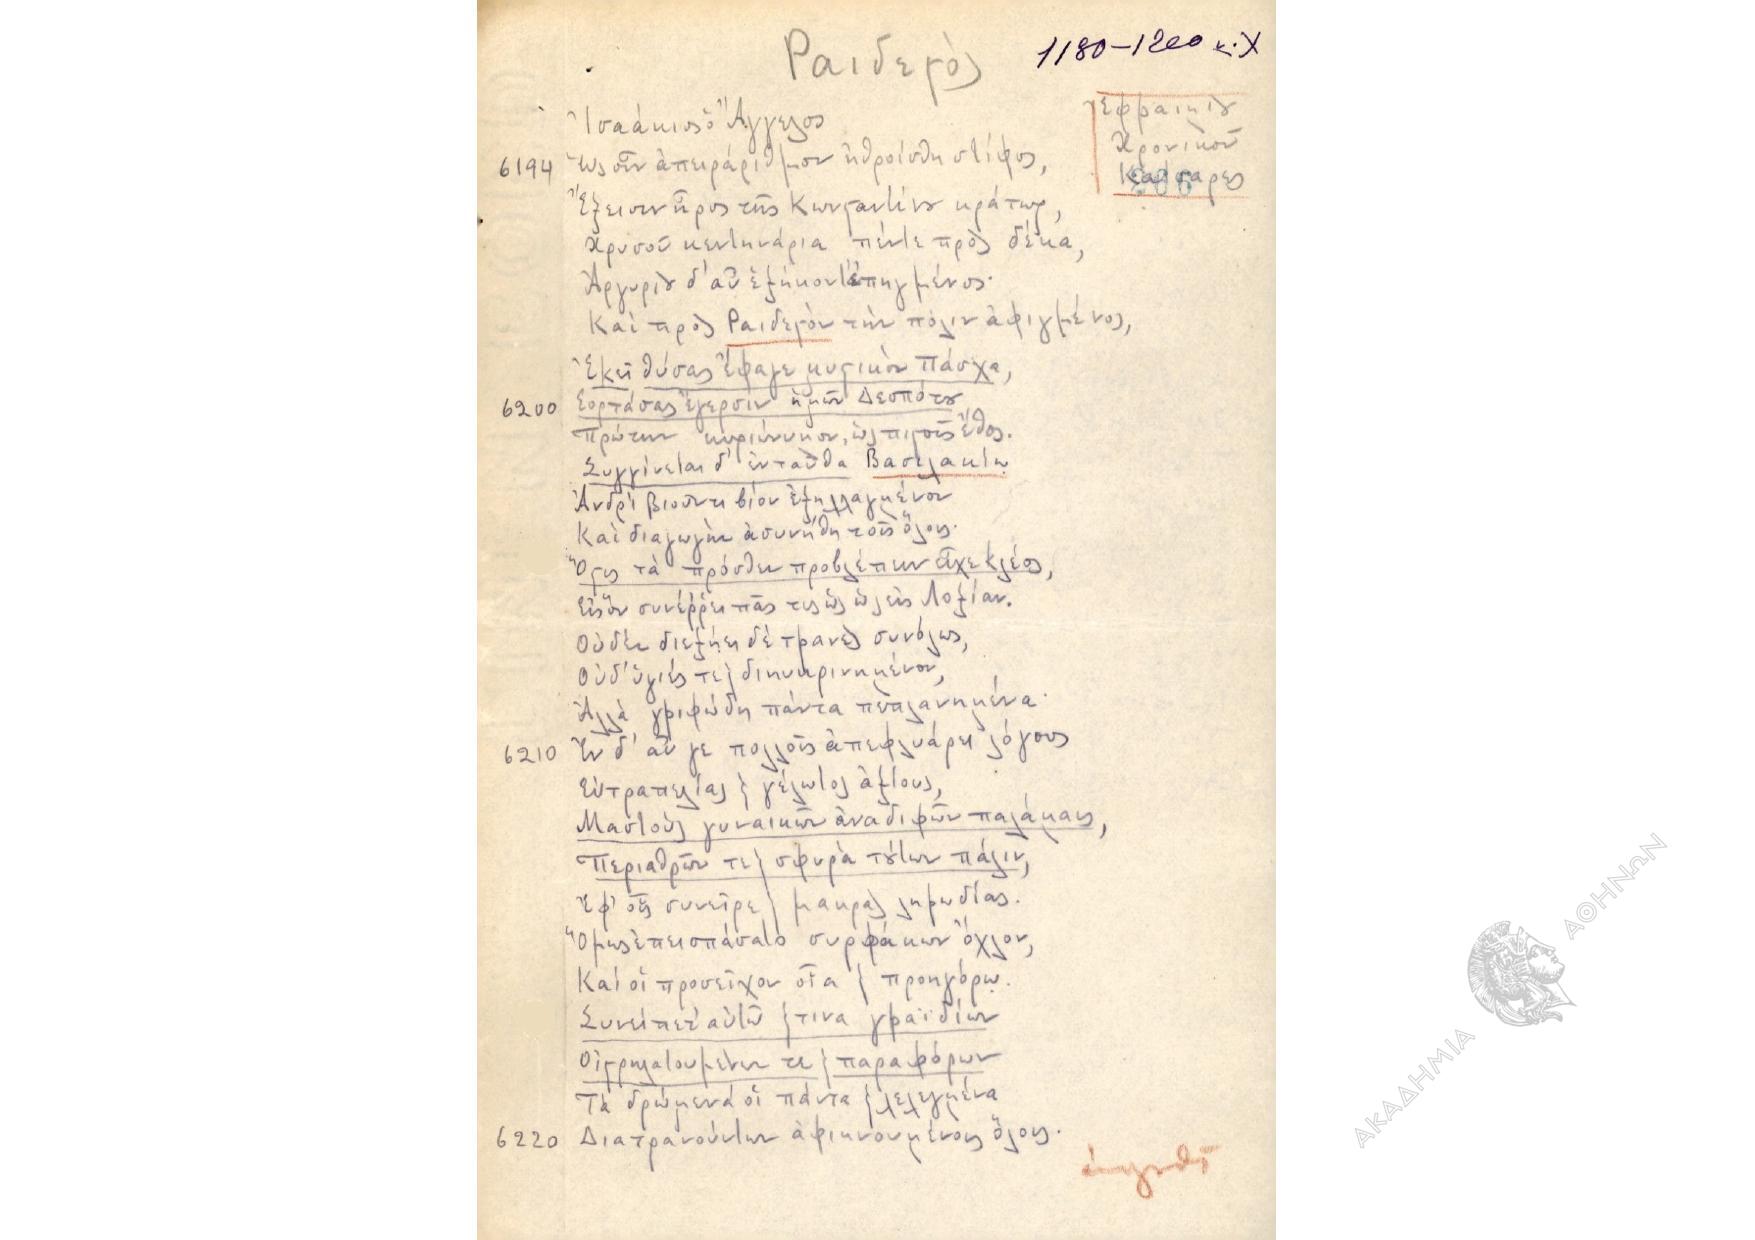 Ραιδεστὸς
1180-1200 κ.Χ
Ἐφραιμίου
Χρονικοῦ
Καίσαρες
Ἰσαάκιος ὁ Ἄγγελος
6194 Ὡς οὖν ἀπειράριθμον ἠθροίσθη στίφος,
Ἔξεισιν ἦρος τῆς Κωνσταντίνου κράτωρ,
Χρυσοῦ κεντηνάρια πέντε πρὸς δέκα,
Ἀργυρίου δ' αὖ ἑξήκοντ' ἐπηγμένος·
Καὶ πρὸς Ραιδεστὸν τὴν πόλιν ἀφιγμένος,
Ἐκεῖ θύσας ἔφαγε μυστικὸν Πάσχα,
6200 Ἑορτάσας ἔγερσιν ἡμῶν Δεσπότου
Πρώτην κυριώνυμον, ὡς πιστοῖς ἔθος.
Συγγίνεται δ' ἐνταῦθα Βασιλακίῳ
Ἀνδρὶ βιοῦντι βίον ἐξηλλαγμένον
Καὶ διαγωγὴν ἀσυνήθη τοῖς ὅλοις·
Ὅστις τὰ πρόσθεν προβλέπειν εἶχε κλέος,
Εἰς ὃν συνέρρει πᾶς τις ὡς εἰς Λοξίαν.
Οὐδὲν διεξῄει δὲ τρανὲς συνόλως,
Οὐδ' ὑγιές τε καὶ διηυκρινημένον,
Ἀλλὰ γριφώδη πάντα πεπλανημένα·
6210 Ἦν δ' αὖ γε πολλοῖς ἀπεφλυάρει λόγους
Εὐτραπελίας καὶ γέλωτος ἀξίους,
Μαστοὺς γυναικῶν ἀναδιφῶν παλάμαις,
Περιαθρῶν τε καὶ σφυρὰ τούτων πάλιν,
Ἐφ' οἷς συνεῖρε καὶ μακρὰς ληρῳδίας.
Ὅμως ἐπεισπάσατο συρφάκων ὄχλον,
Καί οἱ προσεῖχον οἷα καὶ προηγόρῳ.
Συνείπετ' αὐτῷ καί τινα γραϊδίων
Οἰστρηλατουμένων τε καὶ παραφόρων
Τὰ δρώμενά οἱ πάντα καὶ λελεγμένα
6220 Διατρανούντων ἀφικνουμένοις ὅλοις.